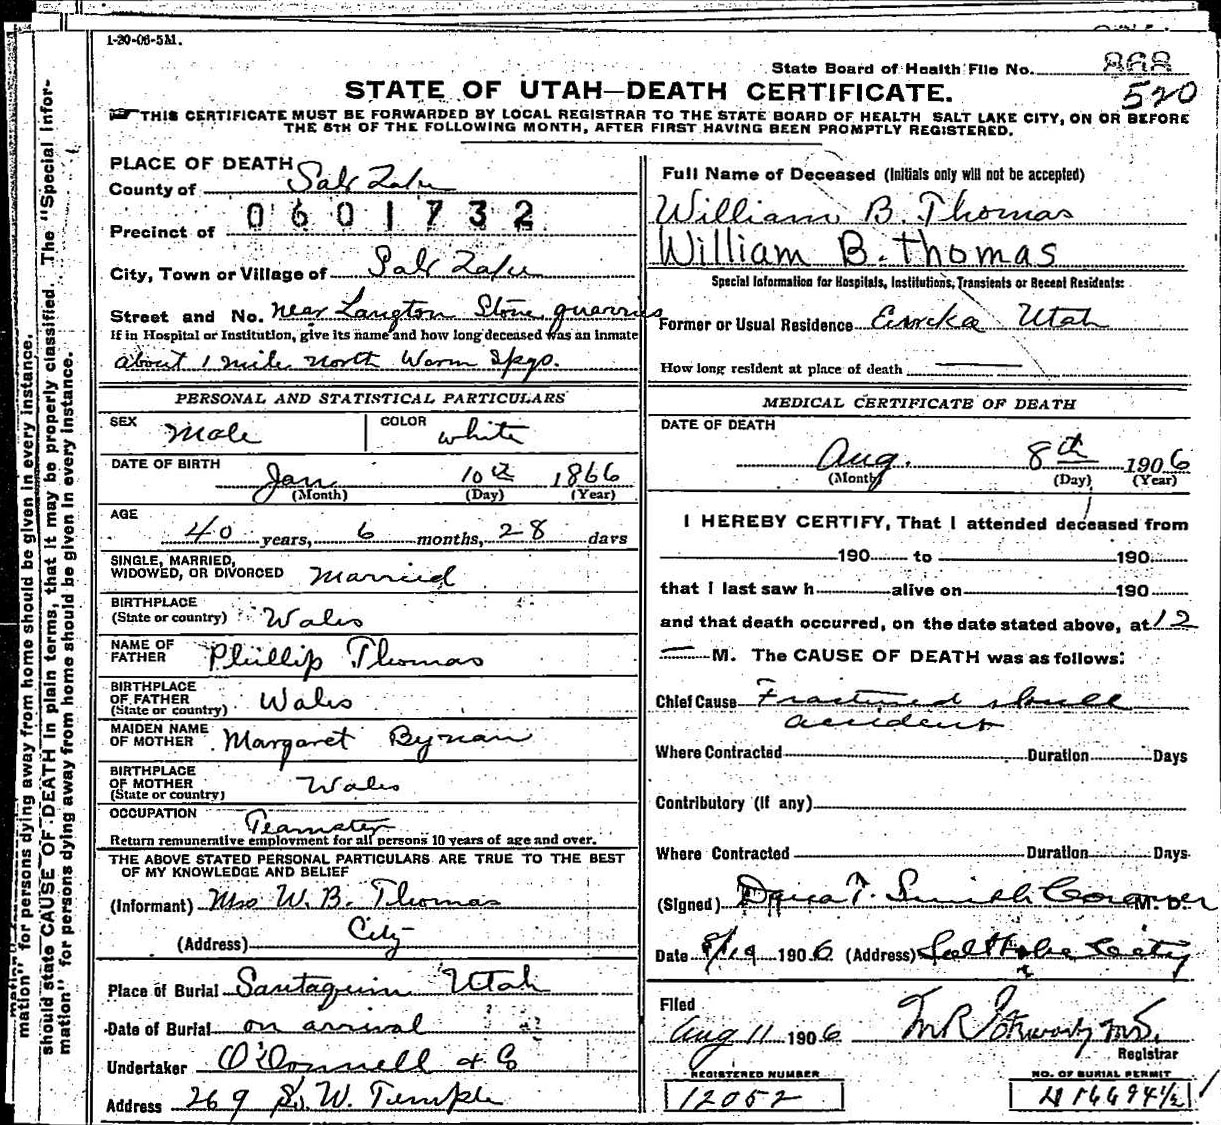 1-20-06-5M.
State Board of Health File No. 868
520
STATE OF UTAH—DEATH CERTIFICATE.
THIS CERTIFICATE MUST BE FORWARDED BY LOCAL REGISTRAR TO THE STATE BOARD OF HEALTH SALT LAKE CITY, ON OR BEFORE
THE 5TH OF THE FOLLOWING MONTH, AFTER FIRST HAVING BEEN PROMPTLY REGISTERED.
PLACE OF DEATH
County of Salt Lake
0601732
Precinct of
City, Town or Village of Salt Lake
Street and No. near Langton Stone quarries
If in Hospital or Institution, give its name and how long deceased was an inmate
about 1 mile north Warm Spgs.
PERSONAL AND STATISTICAL PARTICULARS
SEX Male COLOR white
DATE OF BIRTH
Jan 10th 1866
(Month) (Day) (Year)
AGE
40 years, 6 months, 28 days
SINGLE, MARRIED,
WIDOWED, OR DIVORCED Married
BIRTHPLACE
(State or country) Wales
NAME OF
FATHER Phillip Thomas
BIRTHPLACE
OF FATHER
(State or country) Wales
MAIDEN NAME
OF MOTHER Margaret Bynan
BIRTHPLACE
OF MOTHER
(State or country) Wales
OCCUPATION Teamster
Return remunerative employment for all persons 10 years of age and over.
THE ABOVE STATED PERSONAL PARTICULARS ARE TRUE TO THE BEST
OF MY KNOWLEDGE AND BELIEF
(Informant) Mrs W. B. Thomas
(Address) City
Place of Burial Santaquin Utah
Date of Burial on arrival
Undertaker O'Donnell & Co
Address 269 So. W. Temple
Full Name of Deceased (Initials only will not be accepted)
William B. Thomas
William B. Thomas
Special Information for Hospitals, Institutions, Transients or Recent Residents:
Former or Usual Residence Eureka Utah
How long resident at place of death
MEDICAL CERTIFICATE OF DEATH
DATE OF DEATH
Aug. 8th 1906
(Month) (Day) (Year)
I HEREBY CERTIFY, That I attended deceased from
190 to 190
that I last saw h alive on 190
and that death occurred, on the date stated above, at 12
M. The CAUSE OF DEATH was as follows:
Chief Cause Fractured skull
accident
Where Contracted Duration Days
Contributory (if any)
Where Contracted Duration Days
(Signed) Dana T. Smith Coroner M. D.
Date 8/19 1906 (Address) Salt Lake City
Filed
Aug 11 1906
Registrar
REGISTERED NUMBER
12052
NO. OF BURIAL PERMIT
should state CAUSE OF DEATH in plain terms, that it may be properly classified. The "Special Infor-
mation" for persons dying away from home should be given in every instance.
mation" for persons dying away from home should be given in every instance.